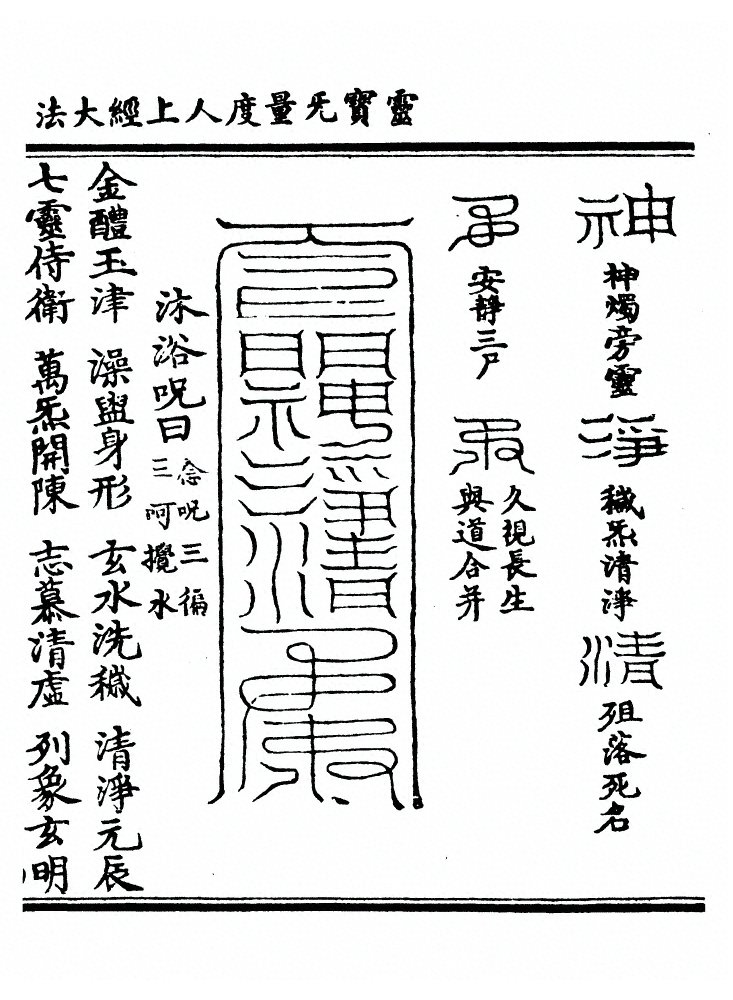 靈寶旡量度人上經大法
神
神燭旁靈
淨
穢炁清淨
清
殂落死名
安靜三尸
久視長生
與道合并
沐浴呪曰
念呪三徧
三呵攪水
金醴玉津 澡盥身形 玄水洗穢 清淨元辰
七靈侍衛 萬炁開陳 志慕清虛 列象玄明